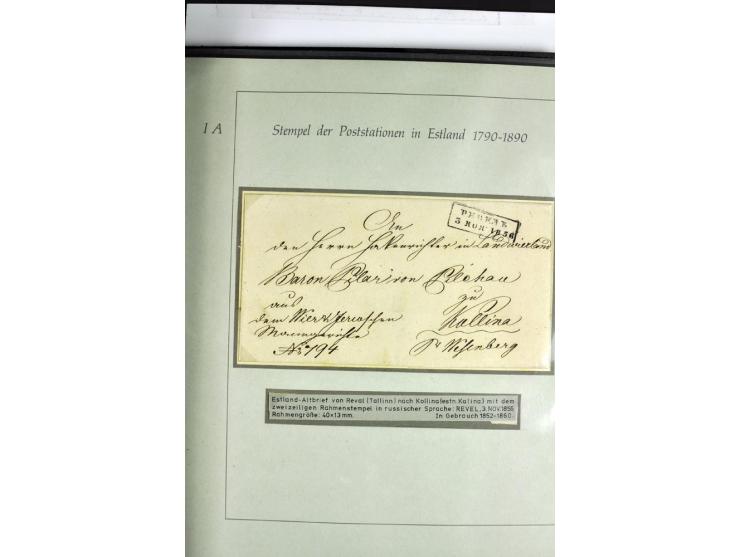 I A
Stempel der Poststationen in Estland 1790-1890
РЕВЕЛЬ
3 НОЯ. 1856
An
den Herrn Hakenrichter in Landwierland
Baron von Pilchau
zu
aus
Kollina
dem Wier & Jerwschen
Manngerichte
pr Wesenberg
No 794
Estland-Altbrief von Reval (Tallinn) nach Kollina(estn. Kalina) mit dem
zweizeiligen Rahmenstempel in russischer Sprache: REVEL, 3. NOV. 1856
Rahmengröße: 40x13 mm. In Gebrauch 1852-1860.